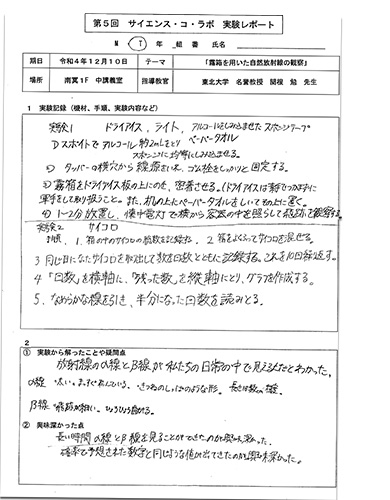 第5回 サイエンス・コ・ラボ 実験レポート
M T 年 組 番 氏名
期日 令和4年12月10日 テーマ 「霧箱を用いた自然放射線の観察」
場所 南冥1F 中講教室 指導教官 東北大学 名誉教授 関根 勉 先生
1 実験記録(機材、手順、実験内容など)
実験1 ドライアイス, ライト, アルコールをしみ込ませたスポンジテープ
ペーパータオル
スポイトでアルコール約2mLをとり
スポンジに均等にしみ込ませる。
2) タッパーの横穴から線源をいれ、ゴム栓をしっかりと固定する。
3) 霧箱をドライアイス板の上にのせ、密着させる。(ドライアイスは素手でつかまずに
軍手をして取り扱うこと。また、机の上にペーパータオルをしいてその上に置く。
4) 1~2分放置し、懐中電灯で横から容器の中を照らして飛跡を観察する。
実験2 サイコロ
1. 箱の中のサイコロの個数を記録する。 2 箱をよくふってサイコロを混ぜる。
3 同じ目になったサイコロを取り出して数を回数とともに記録する。これを10回繰り返す。
4 「回数」を横軸に、「残った数」を縦軸にとり、グラフを作成する。
5. なめらかな線を引き、半分になった回数を読みとる。
2
① 実験から解ったことや疑問点
放射線のα線とβ線が私たちの日常の中で見えるんだとわかった。
α線 太い。まっすぐ きつねのしっぽのような形。長さは数cm
β線
② 興味深かった点
長い時間α線とβ線を見ることができたのが興味深かった。
確率で予想された数字と同じような値が出てきたのが興味深かった。